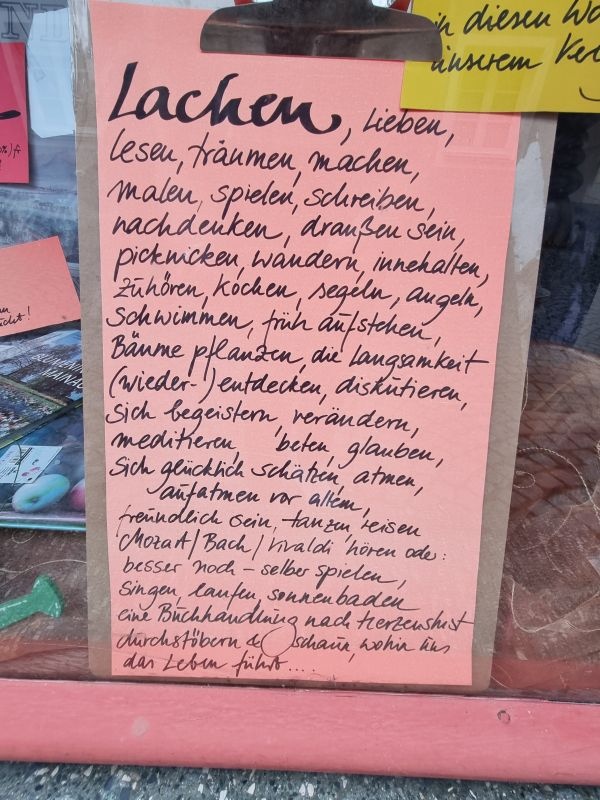 in diesen
unserem
Lachen, Lieben,
lesen, träumen, machen,
malen, spielen, schreiben,
nachdenken, draußen sein,
picknicken, wandern, innehalten,
zuhören, kochen, segeln, angeln,
schwimmen, früh aufstehen,
Bäume pflanzen, die Langsamkeit
(wieder-) entdecken, diskutieren,
sich begeistern, verändern,
meditieren, beten, glauben,
sich glücklich schätzen, atmen,
aufatmen vor allem,
freundlich sein, tanzen, reisen
Mozart/Bach/Vivaldi hören oder:
besser noch – selber spielen,
singen, laufen, sonnenbaden
eine Buchhandlung nach Herzenslust
durchstöbern & schaun, wohin uns
das Leben führt....